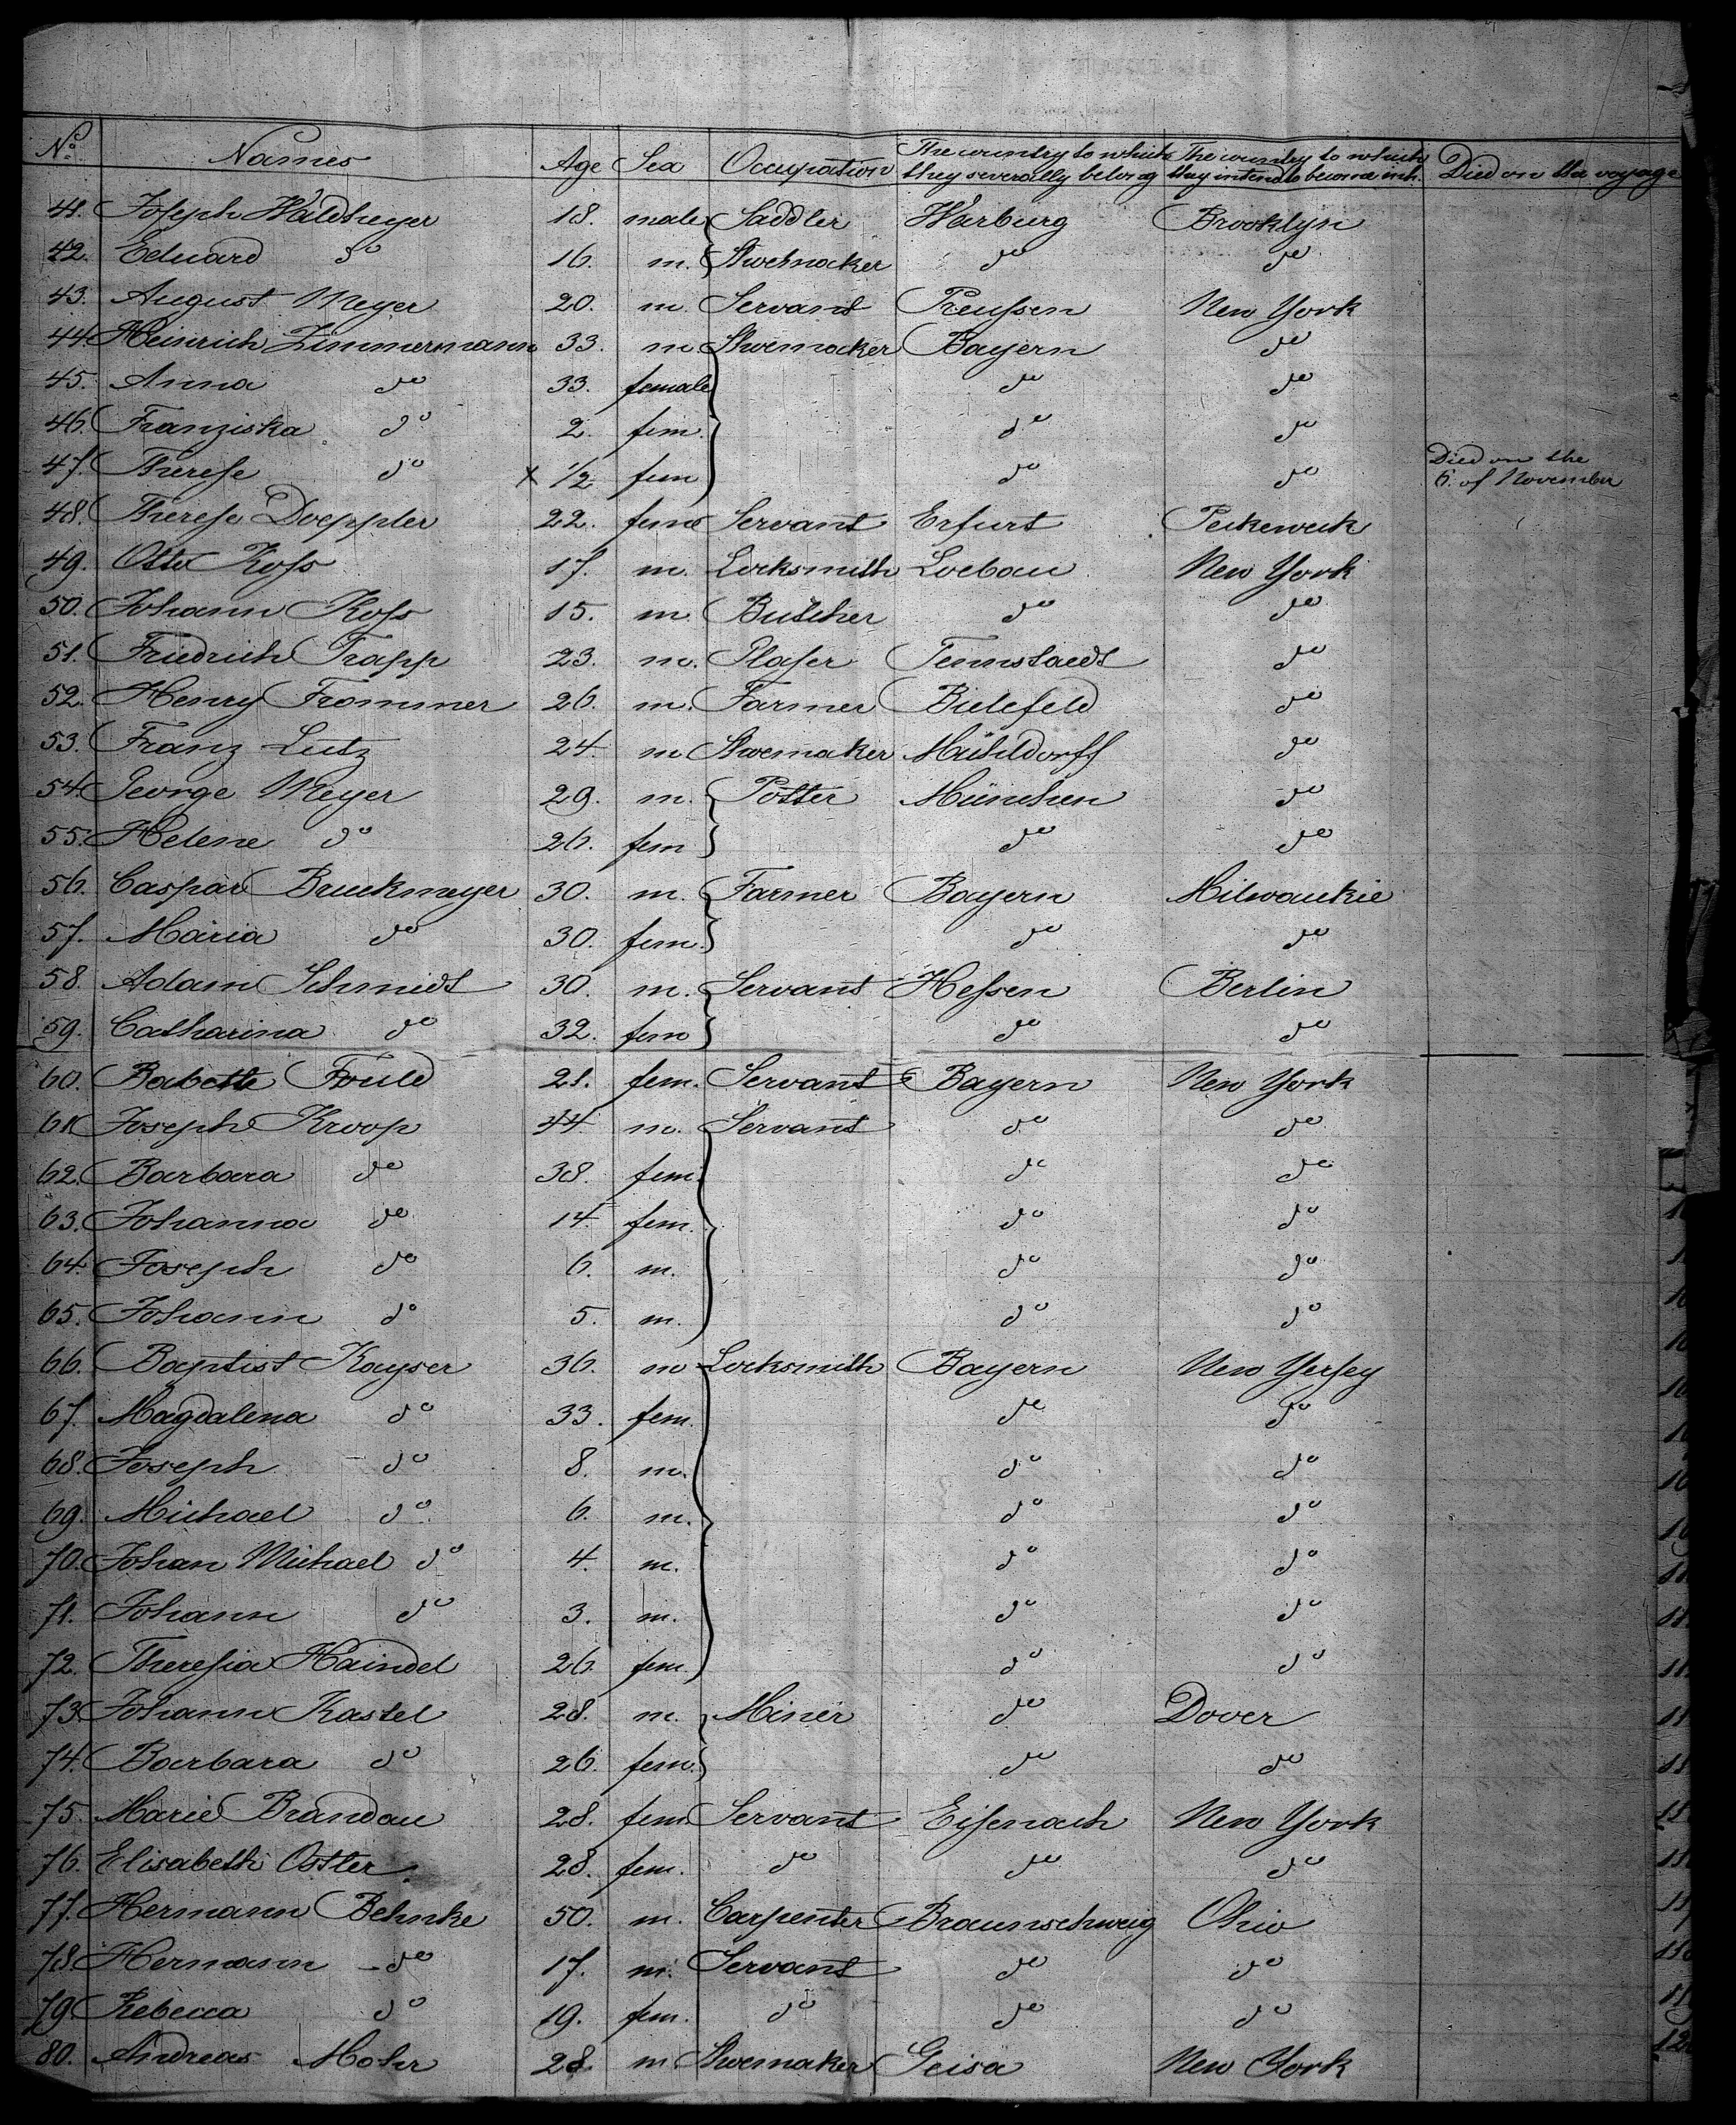 No. Names Age Sex Occupation The country to which they severally belong The country to which they intend to become inh. Died on the voyage
41. Joseph Waldheyer 18. male Saddler Warburg Brooklyn
42. Eduard do 16. m. Shoehmaker do do
43. August Meyer 20. m. Servant Preussen New York
44. Heinrich Zimmermann 33. m. Shoemaker Bayern do
45. Anna do 33. female do do
46. Franziska do 2. fem. do do
47. Therese do x 1/2 fem do do Died on the 6. of November
48. Therese Doeppler 22. fem Servant Erfurt Peikeweik
49. Otto Koss 17. m. Locksmith Loebau New York
50. Johann Koss 15. m. Butcher do do
51. Friedrich Trapp 23. m. Glaser Tennstaedt do
52. Henry Frommer 26. m. Farmer Bielefeld do
53. Franz Lutz 24. m Shoemaker Mühldorff do
54. George Meyer 29. m. Potter München do
55. Helene do 26. fem do do
56. Caspar Bruckmeyer 30. m. Farmer Bayern Milwaukie
57. Maria do 30. fem. do do
58. Adam Schmidt 30. m. Servant Hessen Berlin
59. Catharina do 32. fem do do
60. Babette Fould 21. fem. Servant Bayern New York
61. Joseph Kroop 44 m. Servant do do
62. Barbara do 38. fem. do do
63. Johanna do 14 fem. do do
64. Joseph do 6. m. do do
65. Johann do 5. m. do do
66. Baptist Kayser 36. m Locksmith Bayern New Yersey
67. Magdalena do 33. fem. do do
68. Joseph do 8. m. do do
69. Michael do 6. m. do do
70. Johan Michael do 4. m. do do
71. Johann do 3. m. do do
72. Theresia Haindel 26. fem. do do
73. Johann Kastel 28. m. Miner do Dover
74. Barbara do 26. fem. do do
75. Marie Brandau 28. fem. Servant Eisenach New York
76. Elisabeth Oster 28. fem. do do do
77. Hermann Behnke 50. m. Carpenter Braunschweig Ohio
78. Hermann do 17. m. Servant do do
79. Rebecca do 19. fem. do do do
80. Andreas Mohr 28. m Shoemaker Geisa New York